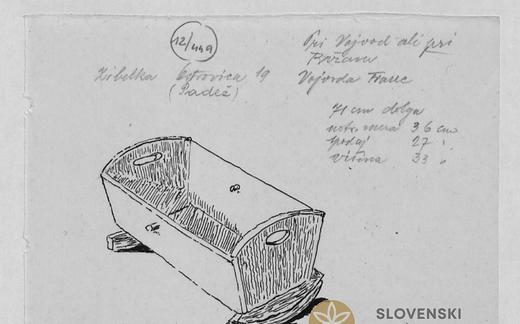 12/449
Pri Vojvod ali pri
Zibelka Ostrovica 19
Vojvoda Franc
(Padež)
71 cm dolga
notr. mera 36 cm
spodaj 27 "
višina 33 "
SLOVENSKI